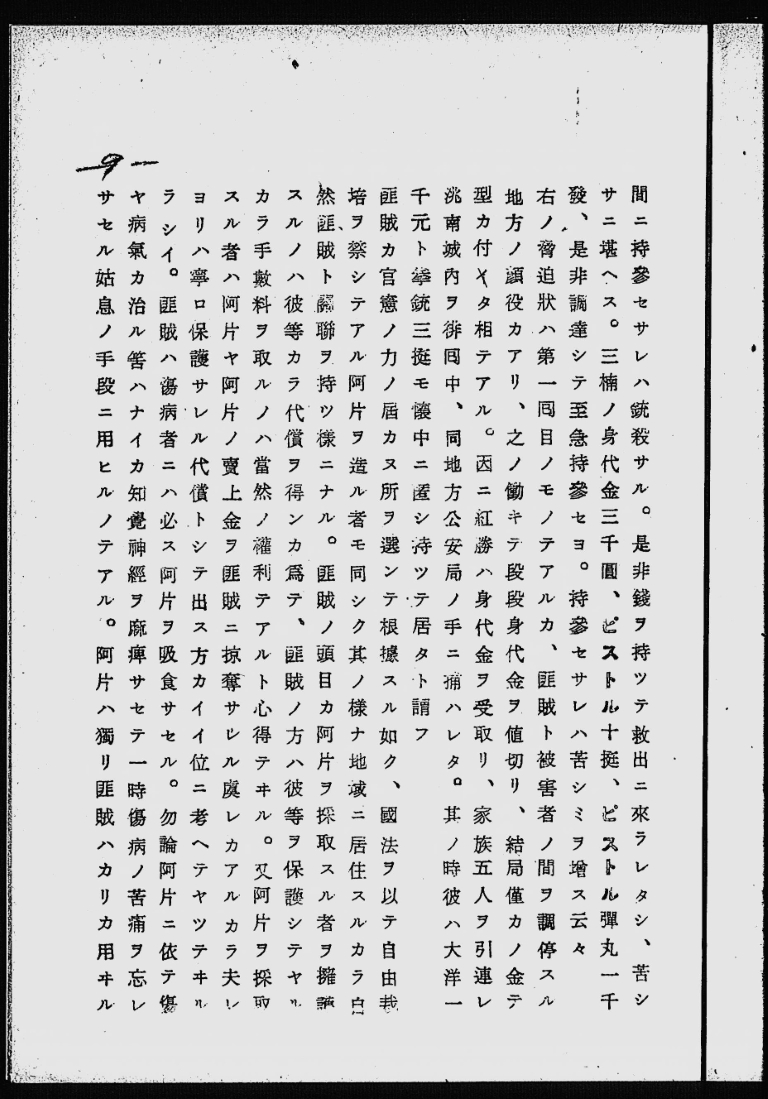 9
間ニ持參セサレハ銃殺サル。是非錢ヲ持ツテ救出ニ來ラレタシ、苦シ
サニ堪ヘス。三楠ノ身代金三千圓、ピストル十挺、ピストル彈丸一千
發、是非調達シテ至急持參セヨ。持參セサレハ苦シミヲ增ス云々
右ノ脅迫狀ハ第一囘目ノモノテアルカ、匪賊ト被害者ノ間ヲ調停スル
地方ノ顔役カアリ、之ノ働キテ段段身代金ヲ値切リ、結局僅カノ金テ
型カ付イタ相テアル。因ニ紅勝ハ身代金ヲ受取リ、家族五人ヲ引連レ
洮南城內ヲ徘囘中、同地方公安局ノ手ニ捕ハレタ。其ノ時彼ハ大洋一
千元ト拳銃三挺モ懷中ニ匿シ持ツテ居タト謂フ
匪賊カ官憲ノ力ノ屆カヌ所ヲ選ンテ根據スル如ク、國法ヲ以テ自由栽
培ヲ禁シテアル阿片ヲ造ル者モ同シク其ノ樣ナ地域ニ居住スルカラ自
然匪賊ト關聯ヲ持ツ樣ニナル。匪賊ノ頭目カ阿片ヲ採取スル者ヲ擁護
スルノハ彼等カラ代償ヲ得ンカ爲テ、匪賊ノ方ハ彼等ヲ保護シテヤル
カラ手數料ヲ取ルノハ當然ノ權利テアルト心得テヰル。又阿片ヲ採取
スル者ハ阿片ヤ阿片ノ賣上金ヲ匪賊ニ掠奪サレル虞レカアルカラ夫レ
ヨリハ寧ロ保護サレル代償トシテ出ス方カイイ位ニ考ヘテヤツテヰル
ラシイ。匪賊ハ傷病者ニハ必ス阿片ヲ吸食サセル。勿論阿片ニ依テ傷
ヤ病氣カ治ル筈ハナイカ知覺神經ヲ麻痺サセテ一時傷病ノ苦痛ヲ忘レ
サセル姑息ノ手段ニ用ヒルノテアル。阿片ハ獨リ匪賊ハカリカ用ヰル